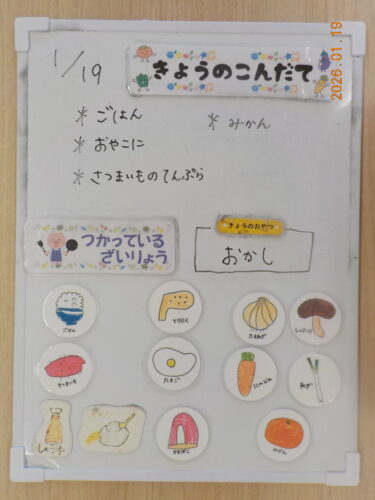 1/19
きょうのこんだて
2026.01.19
* ごはん
* みかん
* おやこに
* さつまいものてんぷら
つかっている
ざいりょう
きょうのおやつ
おかし
ごはん
とりにく
たまねぎ
しいたけ
さつまいも
たまご
にんじん
ねぎ
かまぼこ
みかん